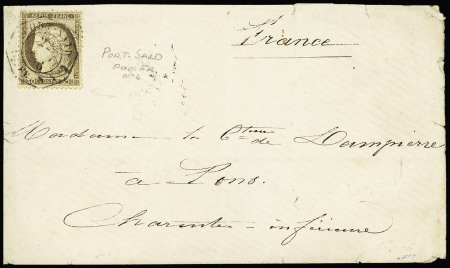 REPUB. FRANC.
France
PORT-SAID
PAQ. FR.
N° 2
Madame la Ctesse de Dampierre
à Pons.
Charente-inférieure